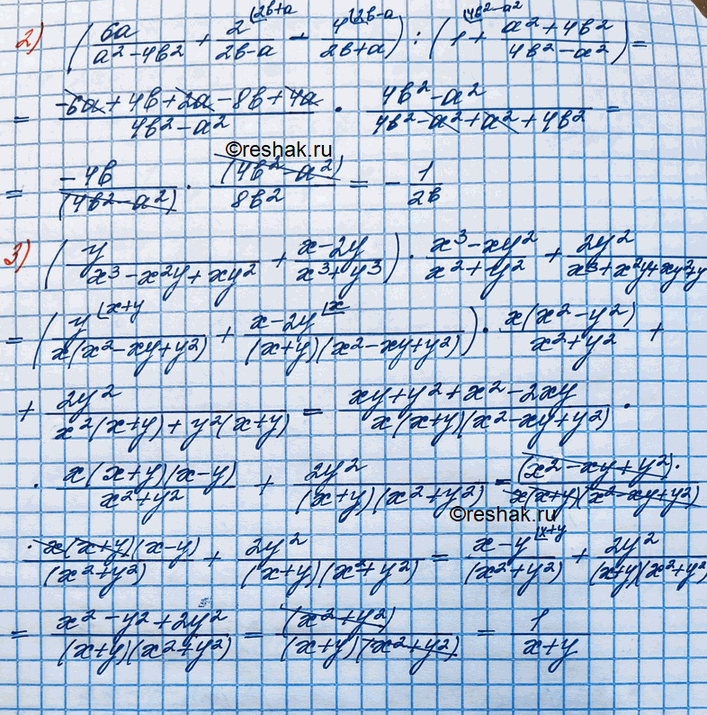 2) (6a/(a²-4b²) + 2/(2b-a) |2b+a - 4/(2b+a) |2b-a) : (1 |4b²-a² + (a²+4b²)/(4b²-a²)) =
= (-6a+4b+2a-8b+4a)/(4b²-a²) · (4b²-a²)/(4b²-a²+a²+4b²) =
©reshak.ru
= -4b/(4b²-a²) · (4b²-a²)/8b² = - 1/2b
3) (y/(x³-x²y+xy²) + (x-2y)/(x³+y³)) · (x³-xy²)/(x²+y²) + 2y²/(x³+x²y+xy²+y
= (y |x+y/(x(x²-xy+y²)) + (x-2y) |x/((x+y)(x²-xy+y²))) · x(x²-y²)/(x²+y²) +
+ 2y²/(x²(x+y)+y²(x+y)) = (xy+y²+x²-2xy)/(x(x+y)(x²-xy+y²)) ·
· x(x+y)(x-y)/(x²+y²) + 2y²/((x+y)(x²+y²)) = (x²-xy+y²)·/(x(x+y)(x²-xy+y²))
©reshak.ru
· x(x+y)(x-y)/(x²+y²) + 2y²/((x+y)(x²+y²)) = (x-y) |x+y/(x²+y²) + 2y²/((x+y)(x²+y²)
= (x²-y²+2y²)/((x+y)(x²+y²)) = (x²+y²)/((x+y)(x²+y²)) = 1/(x+y)